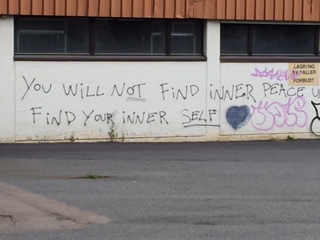 LAGRING
AV PALLER
FORBUDT
YOU WILL NOT FIND INNER PEACE U
FIND YOUR INNER SELF